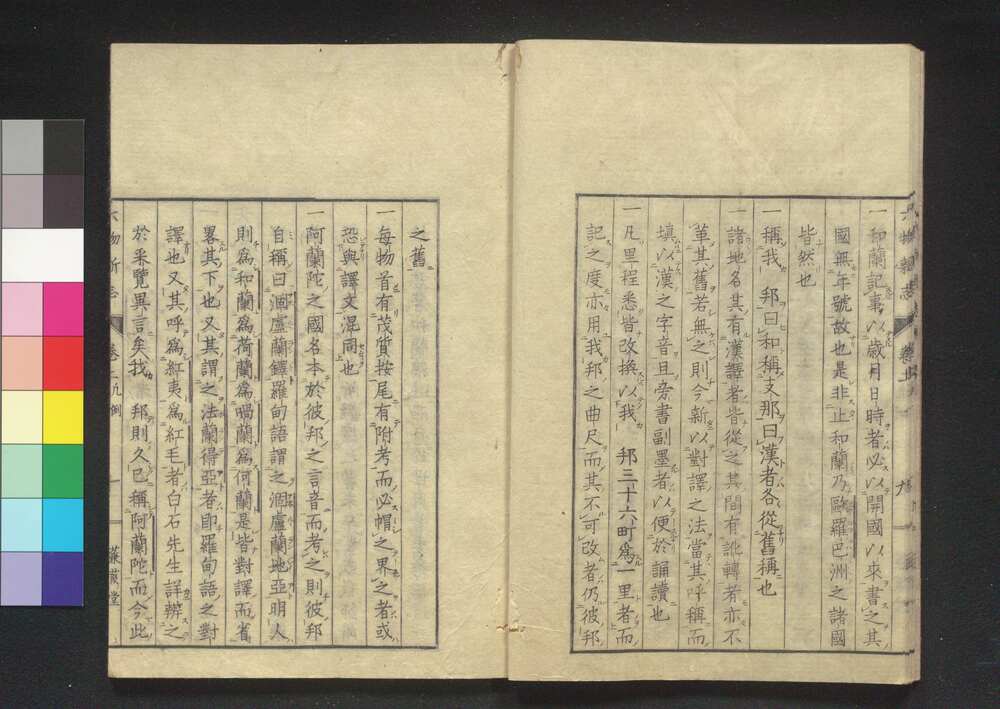 一 和蘭記事以歲月日時者必以開國以來書之其
國無年號故也是非止和蘭乃歐羅巴洲之諸國
皆然也
一 稱我 邦曰和稱支那曰漢者各從舊稱也
一 諸地名其有漢譯者皆從之其間有訛轉者亦不
革其舊若無之則今新以對譯之法當其呼稱而
填以漢之字音且旁書副墨者以便於誦讀也
一 凡里程悉皆改換以我 邦三十六町爲一里者而
記之度亦用我邦之曲尺而其不可改者仍彼邦
之舊
一 每物首有茂質按尾有附考而必帽之界之者或
恐與譯文混同也
一 阿蘭陀之國名本於彼邦之言音而考之則彼邦
自稱曰涸盧蘭鐸羅甸語謂之涸盧蘭地亞明人
則爲和蘭爲荷蘭爲喎蘭爲何蘭是皆對譯而省
畧其下也又其謂之法蘭得亞者即羅甸語之對
譯也又其呼爲紅夷爲紅毛者白石先生詳辨之
於采覽異言矣我 邦則久已稱阿蘭陀而今此